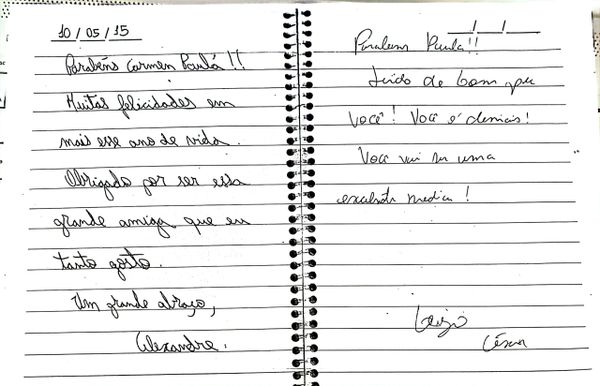 10/05/15
Parabéns Carmen Paula!!
Muitas felicidades em
mais esse ano de vida.
Obrigado por ser essa
grande amiga que eu
tanto gosto.
Um grande abraço,
Alexandre.
Parabens Paula!!
tudo de bom, pra
você! Você é demais!
Você vai ser uma
excelente medica!
César